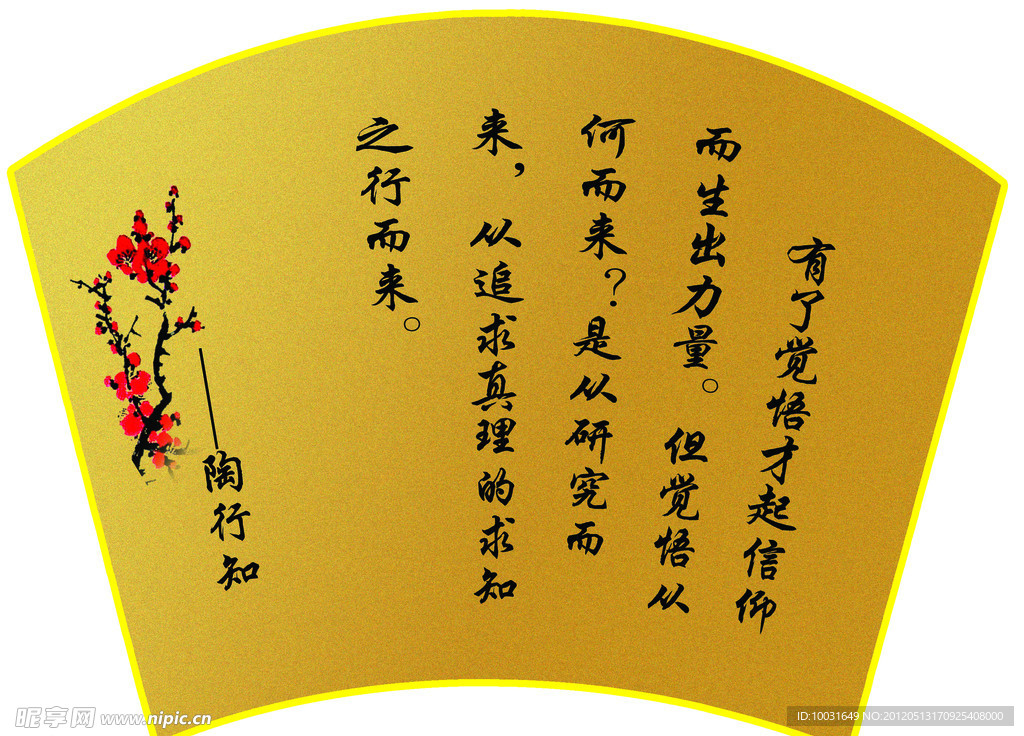 有了觉悟才起信仰
而生出力量。但觉悟从
何而来？是从研究而
来，从追求真理的求知
之行而来。
——陶行知
昵享网 www.nipic.cn
ID:10031649 NO:20120513170925408000